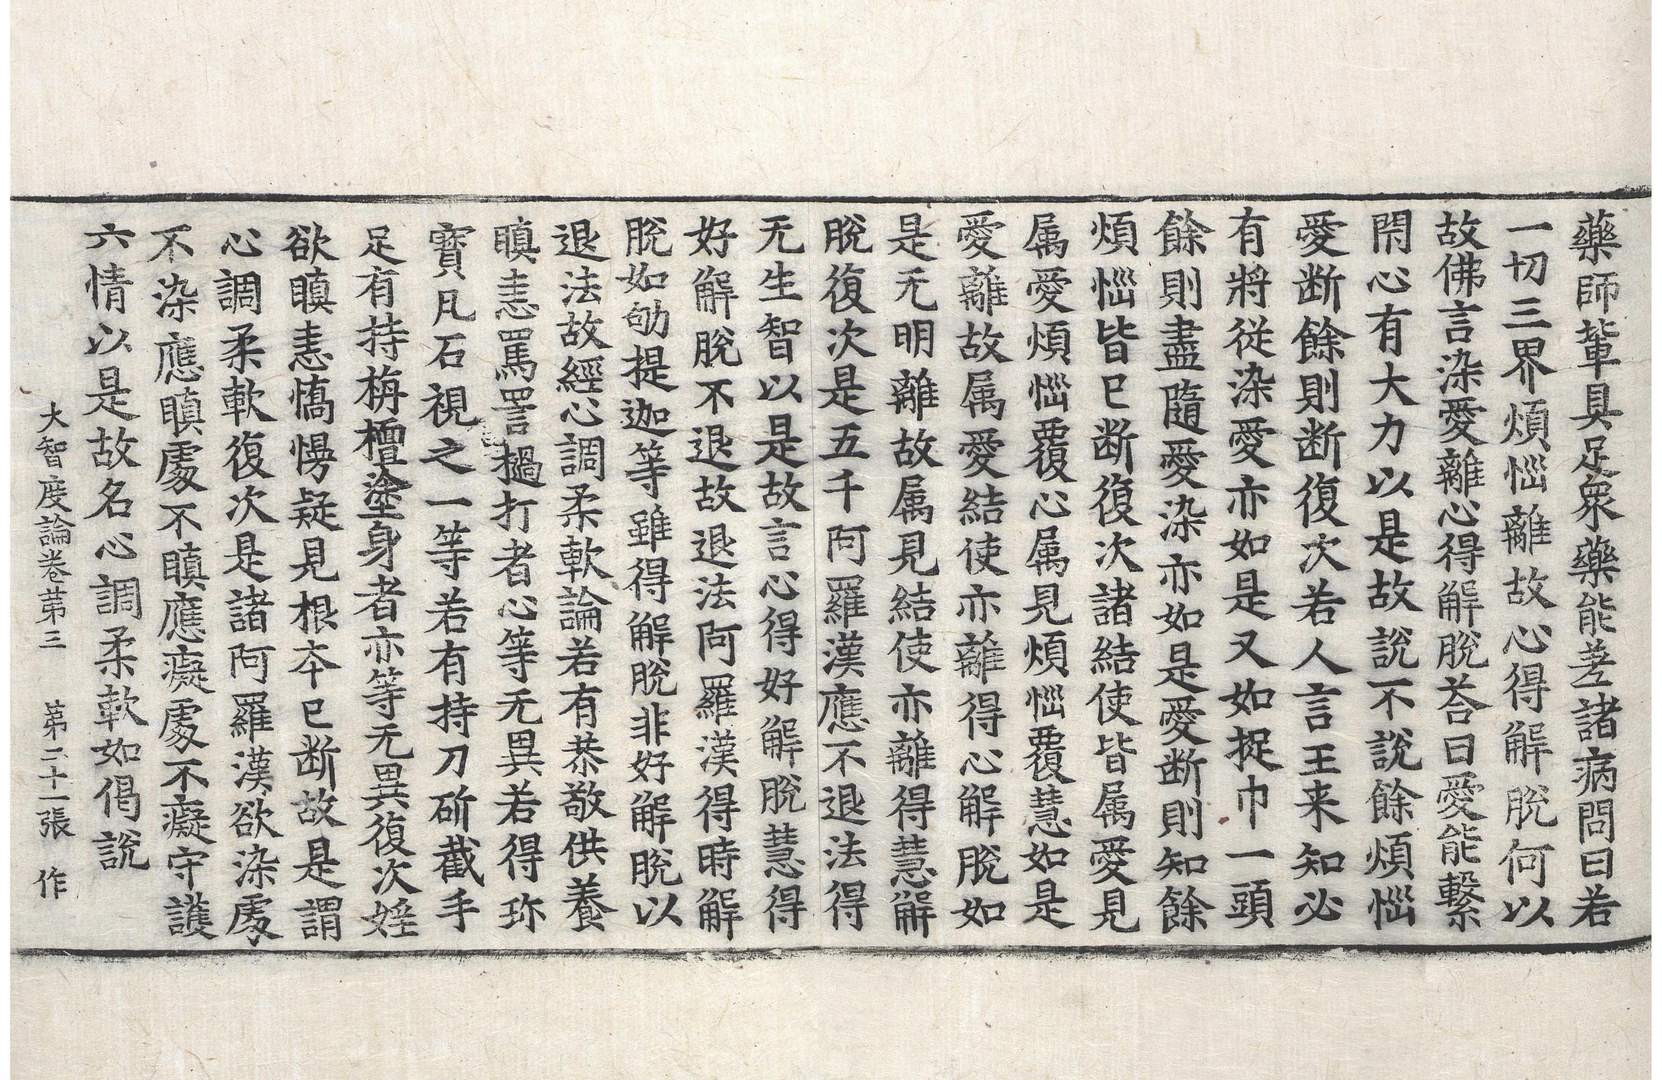 藥師輩具足衆藥能差諸病問曰若
一切三界煩惱離故心得解脫何以
故佛言染愛離心得解脫荅曰愛能繫
閇心有大力以是故說不說餘煩惱
愛断餘則断復次若人言王来知必
有將從染愛亦如是又如捉巾一頭
餘則盡隨愛染亦如是愛断則知餘
煩惱皆已断復次諸結使皆属愛見
属愛煩惱覆心属見煩惱覆慧如是
愛離故属愛結使亦離得心解脫如
是无明離故属見結使亦離得慧解
脫復次是五千阿羅漢應不退法得
无生智以是故言心得好解脫慧得
好解脫不退故退法阿羅漢得時解
脫如劬提迦等雖得解脫非好解脫以
退法故經心調柔軟論若有恭敬供養
瞋恚罵詈撾打者心等无異若得珎
寶凡石視之一等若有持刀斫截手
足有持栴檀塗身者亦等无異復次婬
欲瞋恚憍慢疑見根夲已断故是謂
心調柔軟復次是諸阿羅漢欲染處
不染應瞋處不瞋應癡處不癡守護
六情以是故名心調柔軟如偈說
大智度論卷苐三 苐二十一張 作